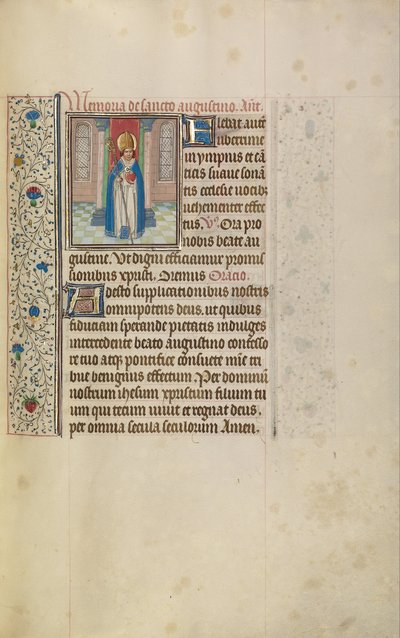 Memoria de sancto augustino. Ant̄.
Flebat aut̄
uberrime
in ympnis et cā
ticis suaue sonā
tis ecclesie uocib;
uehementer affec
tus. V̄s. Ora pro
nobis beate au
gustine. Ut digni efficiamur promis
sionibus xpristi. Oremus Oracio.
Adesto supplicationibus nostris
omnipotens deus. ut quibus
fiduciam sperande pietatis indulges
intercedente beato augustino confesso
re tuo atq; pontifice consuete mīe tri
bue benignus effectum. Per dominū
nostrum ihesum xpristum filium tu
um qui tecum uiuit et regnat deus.
per omnia secula seculorum Amen.